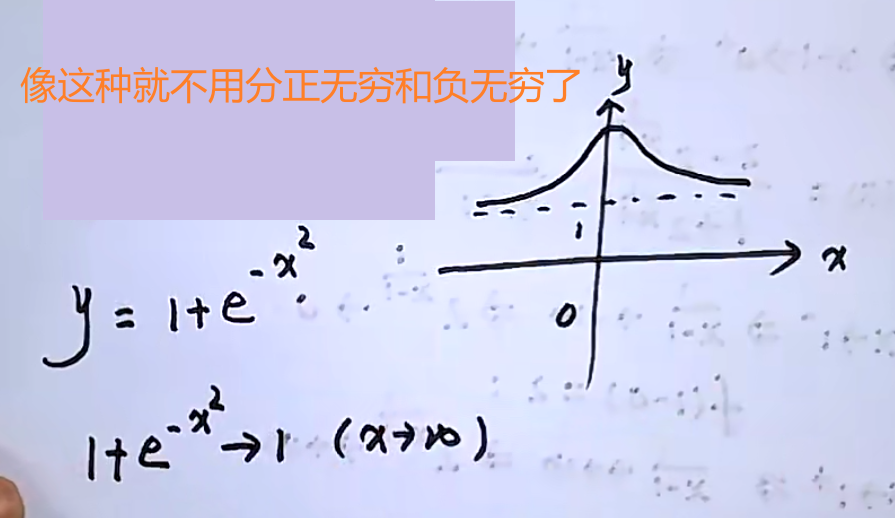 像这种就不用分正无穷和负无穷了
y
1
x
0
y = 1+e^{-x^2}.
1+e^{-x^2} → 1 (x→∞)